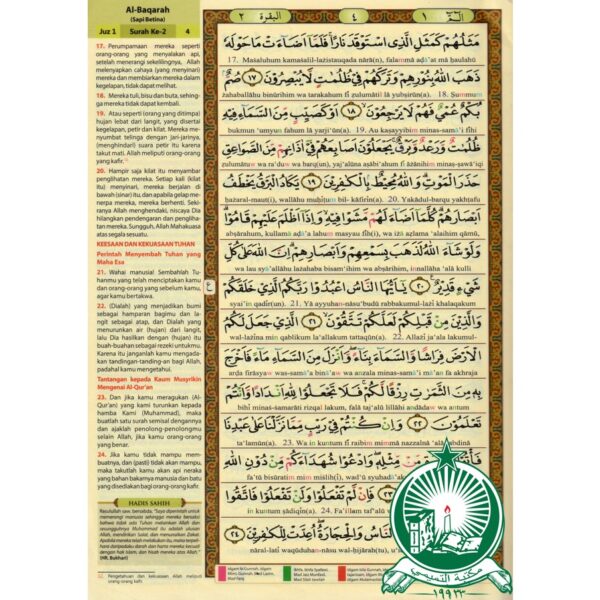 Al-Baqarah
(Sapi Betina)
Juz 1 Surah Ke-2 4
17. Perumpamaan mereka seperti
orang-orang yang menyalakan api,
setelah menerangi sekelilingnya, Allah
melenyapkan cahaya (yang menyinari)
mereka dan membiarkan mereka dalam
kegelapan, tidak dapat melihat.
18. Mereka tuli, bisu dan buta, sehing-
ga mereka tidak dapat kembali.
19. Atau seperti (orang yang ditimpa)
hujan lebat dari langit, yang disertai
kegelapan, petir dan kilat. Mereka me-
nyumbat telinga dengan jari-jarinya,
(menghindari) suara petir itu karena
takut mati. Allah meliputi orang-orang
yang kafir.
20. Hampir saja kilat itu menyambar
penglihatan mereka. Setiap kali (kilat
itu) menyinari, mereka berjalan di
bawah (sinar) itu, dan apabila gelap mene-
rpa mereka, mereka berhenti. Seki-
ranya Allah menghendaki, niscaya Dia
hilangkan pendengaran dan penglihat-
an mereka. Sungguh, Allah Mahakuasa
atas segala sesuatu.
KEESAAN DAN KEKUASAAN TUHAN
Perintah Menyembah Tuhan yang
Maha Esa
21. Wahai manusia! Sembahlah Tu-
hanmu yang telah menciptakan kamu
dan orang-orang yang sebelum kamu,
agar kamu bertakwa.
22. (Dialah) yang menjadikan bumi
sebagai hamparan bagimu dan la-
ngit sebagai atap, dan Dialah yang
menurunkan air (hujan) dari langit,
lalu Dia hasilkan dengan (hujan) itu
buah-buahan sebagai rezeki untukmu.
Karena itu janganlah kamu mengada-
kan tandingan-tandingan bagi Allah,
padahal kamu mengetahui.
Tantangan kepada Kaum Musyrikin
Mengenai Al-Qur'an
23. Dan jika kamu meragukan (Al-
Qur'an) yang Kami turunkan kepada
hamba Kami (Muhammad), maka
buatlah satu surah semisal dengannya
dan ajaklah penolong-penolongmu
selain Allah, jika kamu orang-orang
yang benar.
24. Jika kamu tidak mampu mem-
buatnya, dan (pasti) tidak akan mampu,
maka takutlah kamu akan api neraka
yang bahan bakarnya manusia dan batu
yang disediakan bagi orang-orang kafir.
HADIS SAHIH
(HR. Bukhari)
البقرة ٢
٤
١
مَثَلُهُمْ كَمَثَلِ الَّذِى اسْتَوْقَدَ نَارًا فَلَمَّآ اَضَاۤءَتْ مَا حَوْلَهٗ
17. Maṡaluhum kamaṡalil-lażistauqada nārā(n), falammā aḍā'at mā ḥaulahū
ذَهَبَ اللّٰهُ بِنُوْرِهِمْ وَتَرَكَهُمْ فِيْ ظُلُمٰتٍ لَّا يُبْصِرُوْنَ ١٧ صُمٌّۢ
żahaballāhu binūrihim wa tarakahum fī ẓulumātil lā yubṣirūn(a). 18. Ṣummum
بُكْمٌ عُمْيٌ فَهُمْ لَا يَرْجِعُوْنَ ١٨ اَوْ كَصَيِّبٍ مِّنَ السَّمَاۤءِ فِيْهِ
bukmun 'umyun fahum lā yarji'ūn(a). 19. Au kaṣayyibim minas-samā'i fīhi
ظُلُمٰتٌ وَّرَعْدٌ وَّبَرْقٌ يَجْعَلُوْنَ اَصَابِعَهُمْ فِيْٓ اٰذَانِهِمْ مِّنَ الصَّوَاعِقِ
ẓulumātuw wa ra'duw wa barq(un), yaj'alūna aṣābi'ahum fī āżānihim minaṣ-ṣawā'iqi
حَذَرَ الْمَوْتِ وَاللّٰهُ مُحِيْطٌۢ بِالْكٰفِرِيْنَ ١٩ يَكَادُ الْبَرْقُ يَخْطَفُ
ḥażaral-maut(i), wallāhu muḥīṭum bil- kāfirīn(a). 20. Yakādul-barqu yakhṭafu
اَبْصَارَهُمْ كُلَّمَآ اَضَاۤءَ لَهُمْ مَّشَوْا فِيْهِ وَاِذَآ اَظْلَمَ عَلَيْهِمْ قَامُوْا
abṣārahum, kullamā aḍā'a lahum masyau fīh(i), wa iżā aẓlama 'alaihim qāmū,
وَلَوْ شَاۤءَ اللّٰهُ لَذَهَبَ بِسَمْعِهِمْ وَاَبْصَارِهِمْ اِنَّ اللّٰهَ عَلٰى كُلِّ
wa lau syā'allāhu lażahaba bisam'ihim wa abṣārihim, innallāha 'alā kulli
شَيْءٍ قَدِيْرٌ ٢٠ يٰٓاَيُّهَا النَّاسُ اعْبُدُوْا رَبَّكُمُ الَّذِيْ خَلَقَكُمْ
syai'in qadīr(un). 21. Yā ayyuhan-nāsu'budū rabbakumul-lażī khalaqakum
وَالَّذِيْنَ مِنْ قَبْلِكُمْ لَعَلَّكُمْ تَتَّقُوْنَ ٢١ الَّذِيْ جَعَلَ لَكُمُ
wal-lażīna min qablikum la'allakum tattaqūn(a). 22. Allażī ja'ala lakumul-
الْاَرْضَ فِرَاشًا وَّالسَّمَاۤءَ بِنَاۤءً وَّاَنْزَلَ مِنَ السَّمَاۤءِ مَاۤءً فَاَخْرَجَ
arḍa firāsyaw was-samā'a binā'aw wa anzala minas-samā'i mā'an fa akhraja
بِهٖ مِنَ الثَّمَرٰتِ رِزْقًا لَّكُمْ فَلَا تَجْعَلُوْا لِلّٰهِ اَنْدَادًا وَّاَنْتُمْ
bihī minaṡ-ṡamarāti rizqal lakum, falā taj'alū lillāhi andādaw wa antum
تَعْلَمُوْنَ ٢٢ وَاِنْ كُنْتُمْ فِيْ رَيْبٍ مِّمَّا نَزَّلْنَا عَلٰى عَبْدِنَا
ta'lamūn(a). 23. Wa in kuntum fī raibim mimmā nazzalnā 'alā 'abdinā
مِّنْ مِّثْلِهٖ وَادْعُوْا شُهَدَاۤءَكُمْ مِّنْ دُوْنِ اللّٰهِ
fa'tū bisūratim mim miṡlih(ī), wad'ū syuhadā'akum min dūnillāhi
٢٣ فَاِنْ لَّمْ تَفْعَلُوْا وَلَنْ تَفْعَلُوْا فَاتَّقُوا
in kuntum ṣādiqīn(a). 24. Fa'illam taf'alū
النَّاسُ وَالْحِجَارَةُ اُعِدَّتْ لِلْكٰفِرِيْنَ ٢٤
nāral-latī waqūduhan-nāsu wal-ḥijārah(tu),
١٩٢٣